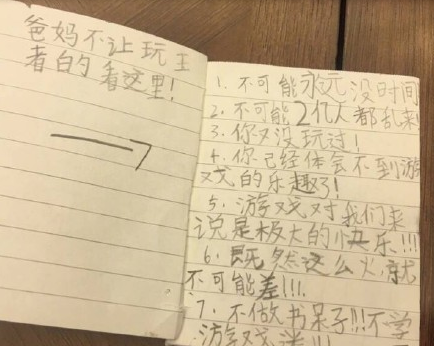 爸妈不让玩王
者的看这里!
1. 不可能永元没时间
2. 不可能2亿人都乱来!
3. 你又没玩过!
4. 你已经体会不到游
戏的乐趣了!
5. 游戏对我们来
说是极大的快乐!!!
6. 既然这么火,就
不可能差!!!.
7. 不做书呆子!!!不学
游戏迷!!!